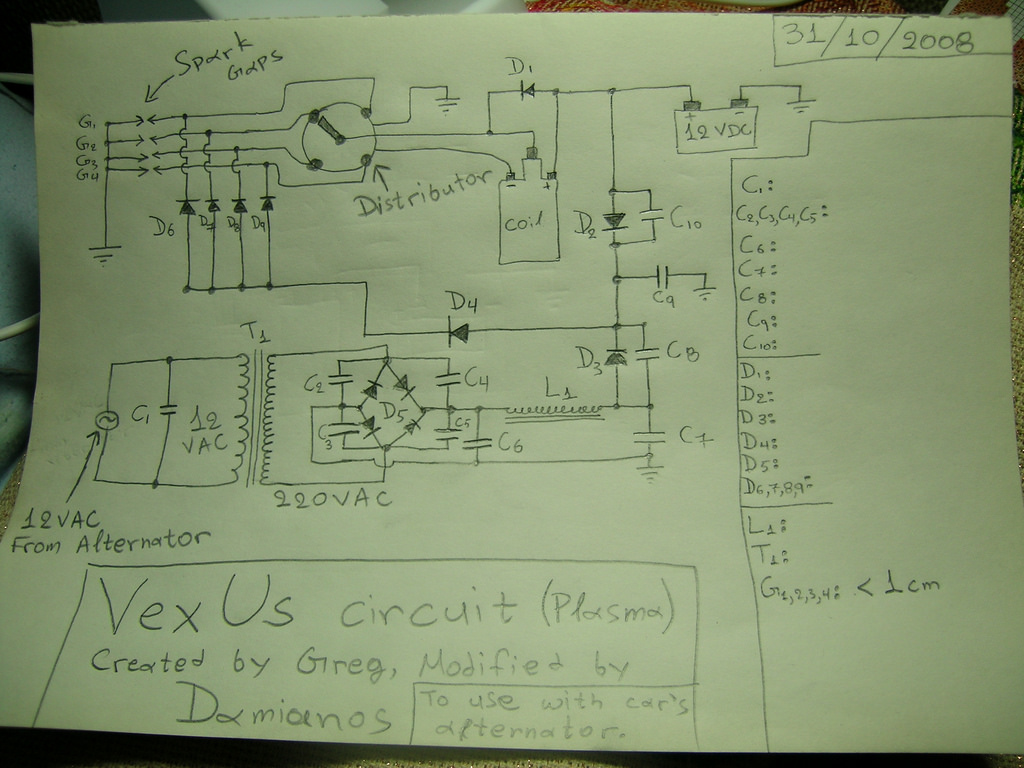 31/10/2008
Spark
Gaps
G1
G2
G3
G4
Distributor
D1
+ -
12 VDC
- +
coil
D6 D7 D8 D9
D2 C10
C9
D4
D3 C8
T1
C1
12
VAC
220VAC
C2 C4
D5
C3 C5
C6
L1
C7
12VAC
From Alternator
C1:
C2,C3,C4,C5:
C6:
C7:
C8:
C9:
C10:
D1:
D2:
D3:
D4:
D5:
D6,7,8,9:
L1:
T1:
G1,2,3,4: < 1cm
Vex Us circuit (Plasma)
Created by Greg, Modified by
Damianos
To use with car's
alternator.